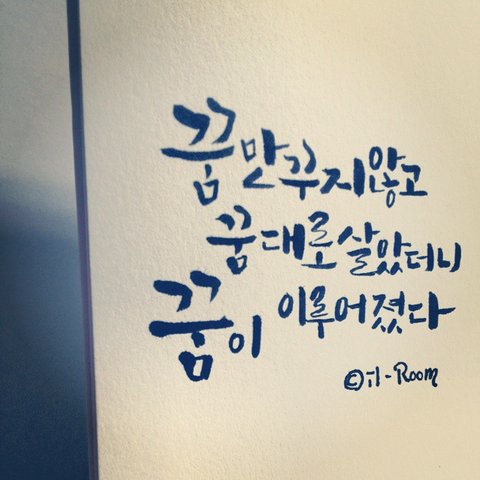 꿈만 꾸지 않고
꿈대로 살았더니
꿈이 이루어졌다
©il-Room